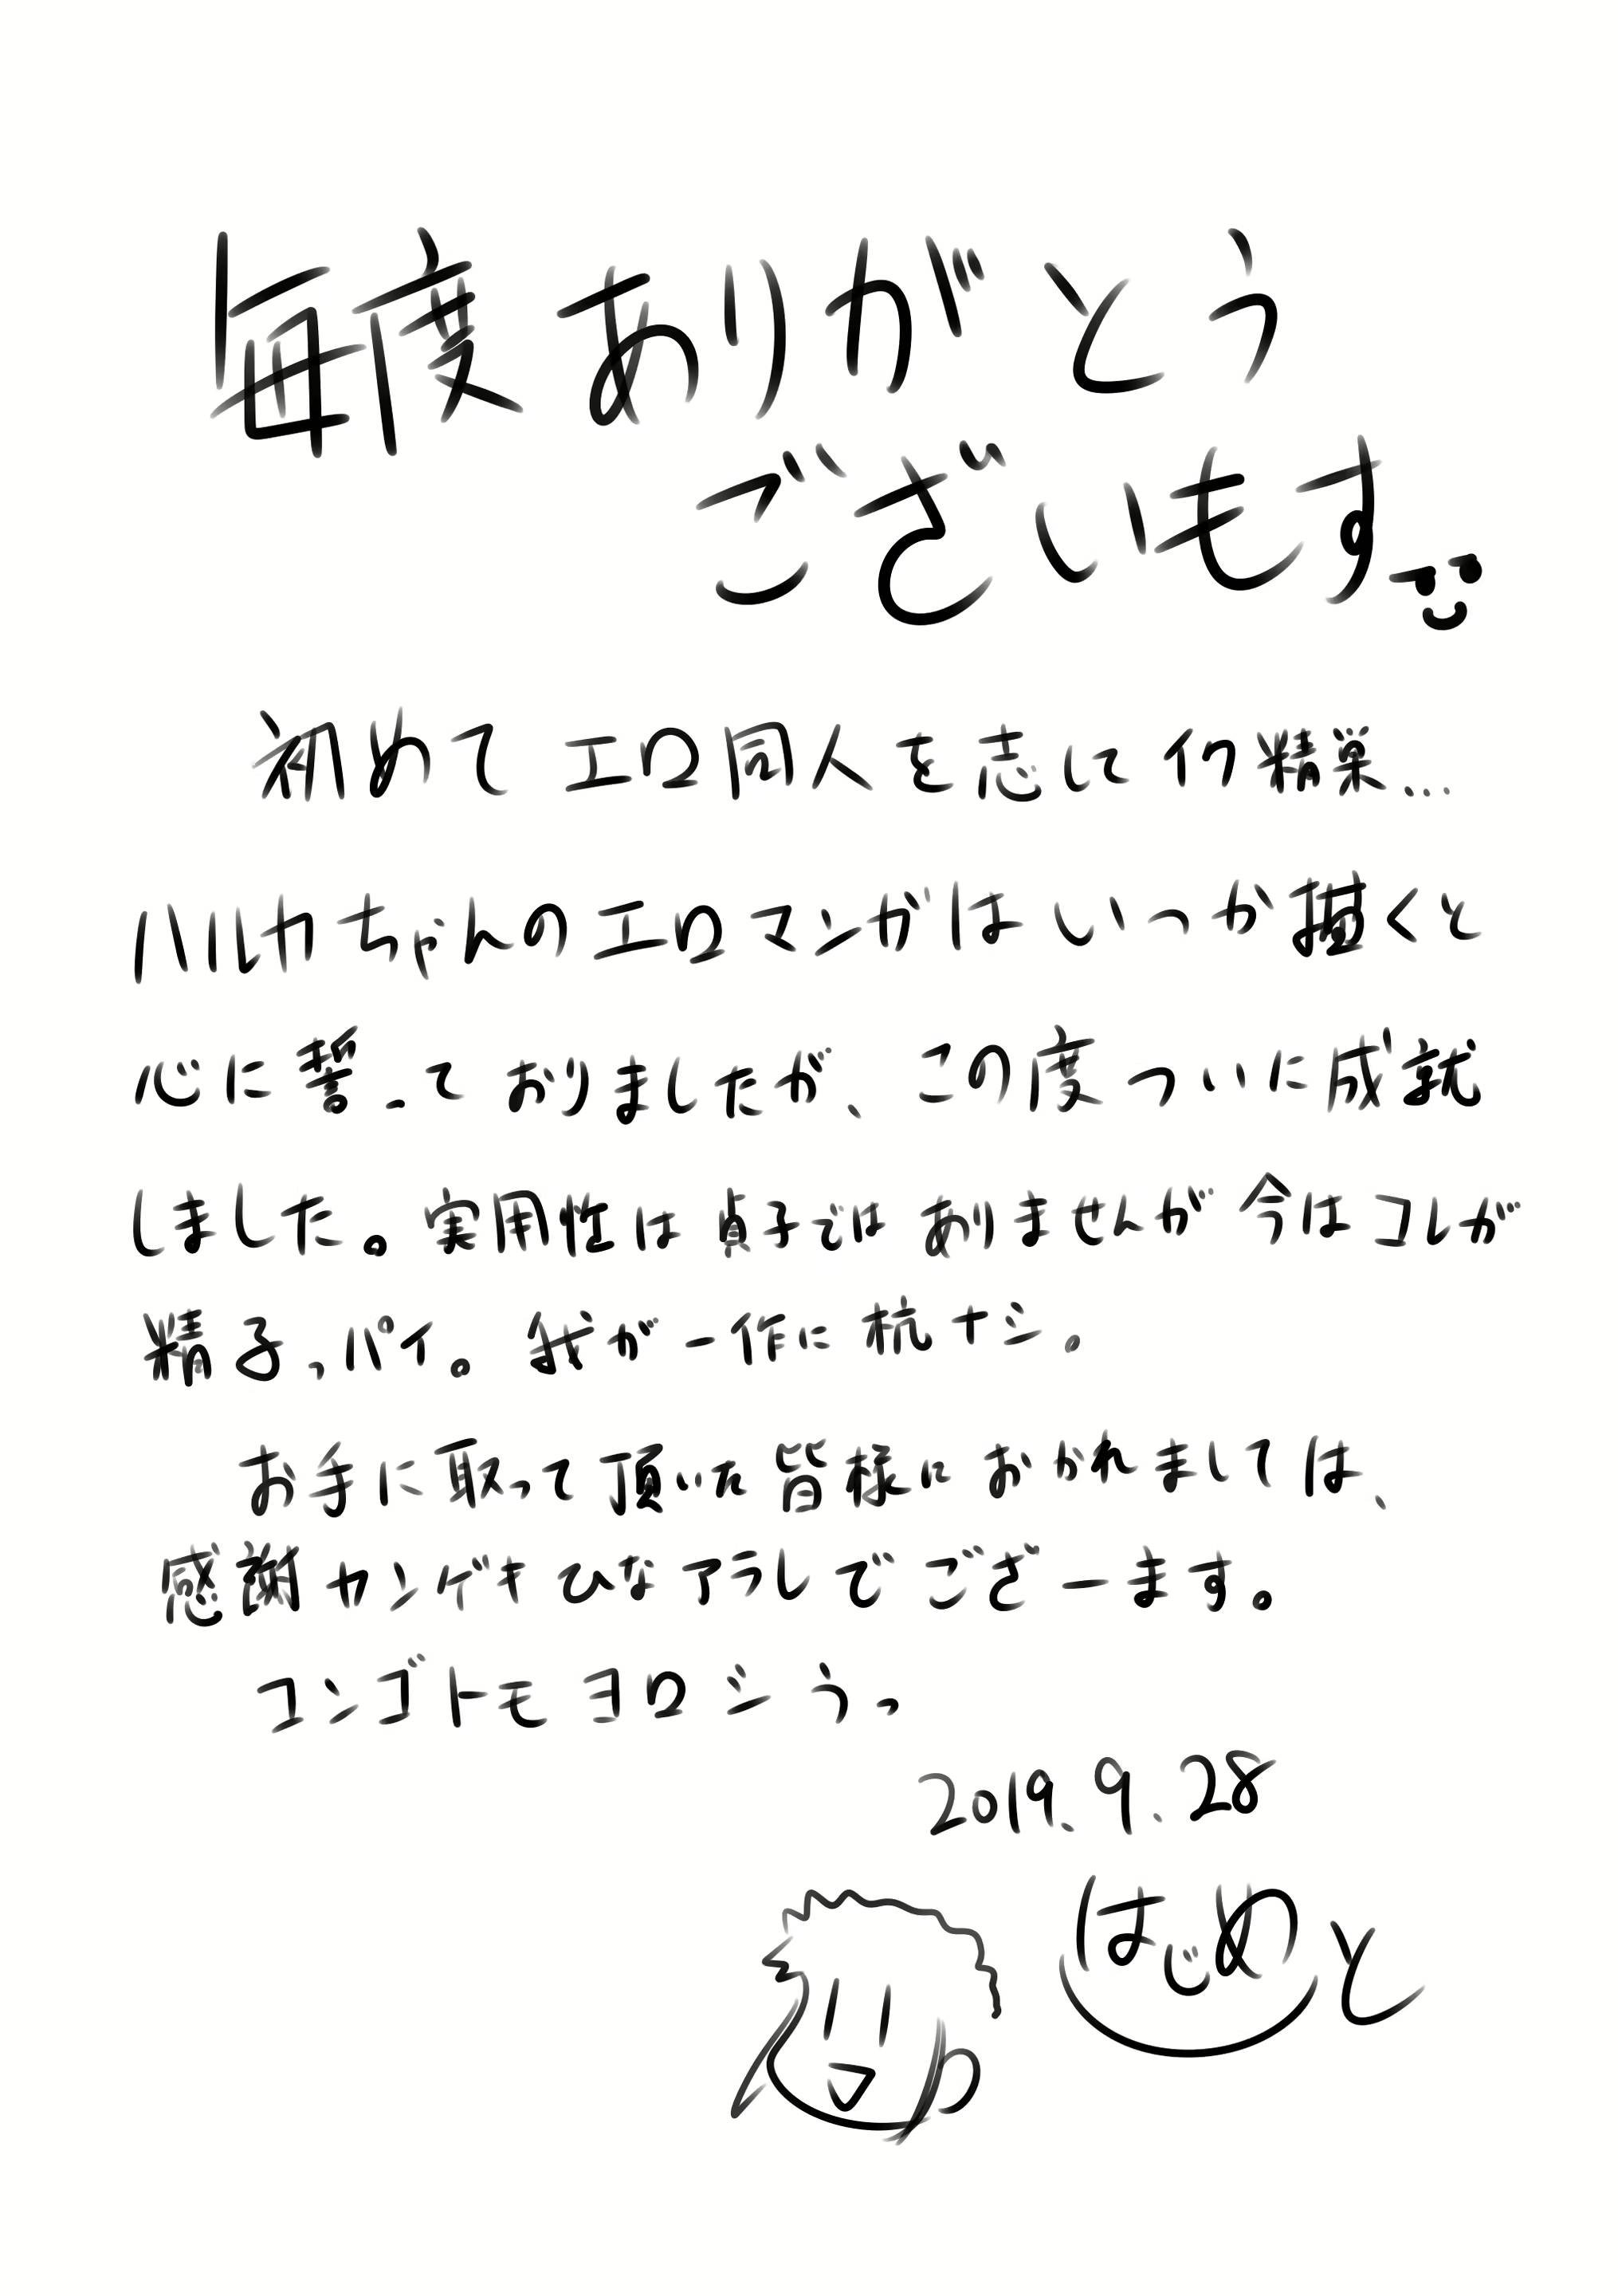 毎度ありがとう
ございもす
初めてエロ同人を志してイク精巣...
ハルカちゃんのエロマンガはいつか描くと
心に誓っておりましたが、この度ついに成就
しました。実用性は貞子ではありませんが今はコレが
精子っパイ。我が一作に杭ナシ。
お手に取って頂いた皆様におかれましては、
感謝カンゲキひなアラレでござーます。
コンゴトモヨロシうっ
2019.9.28
はじめと